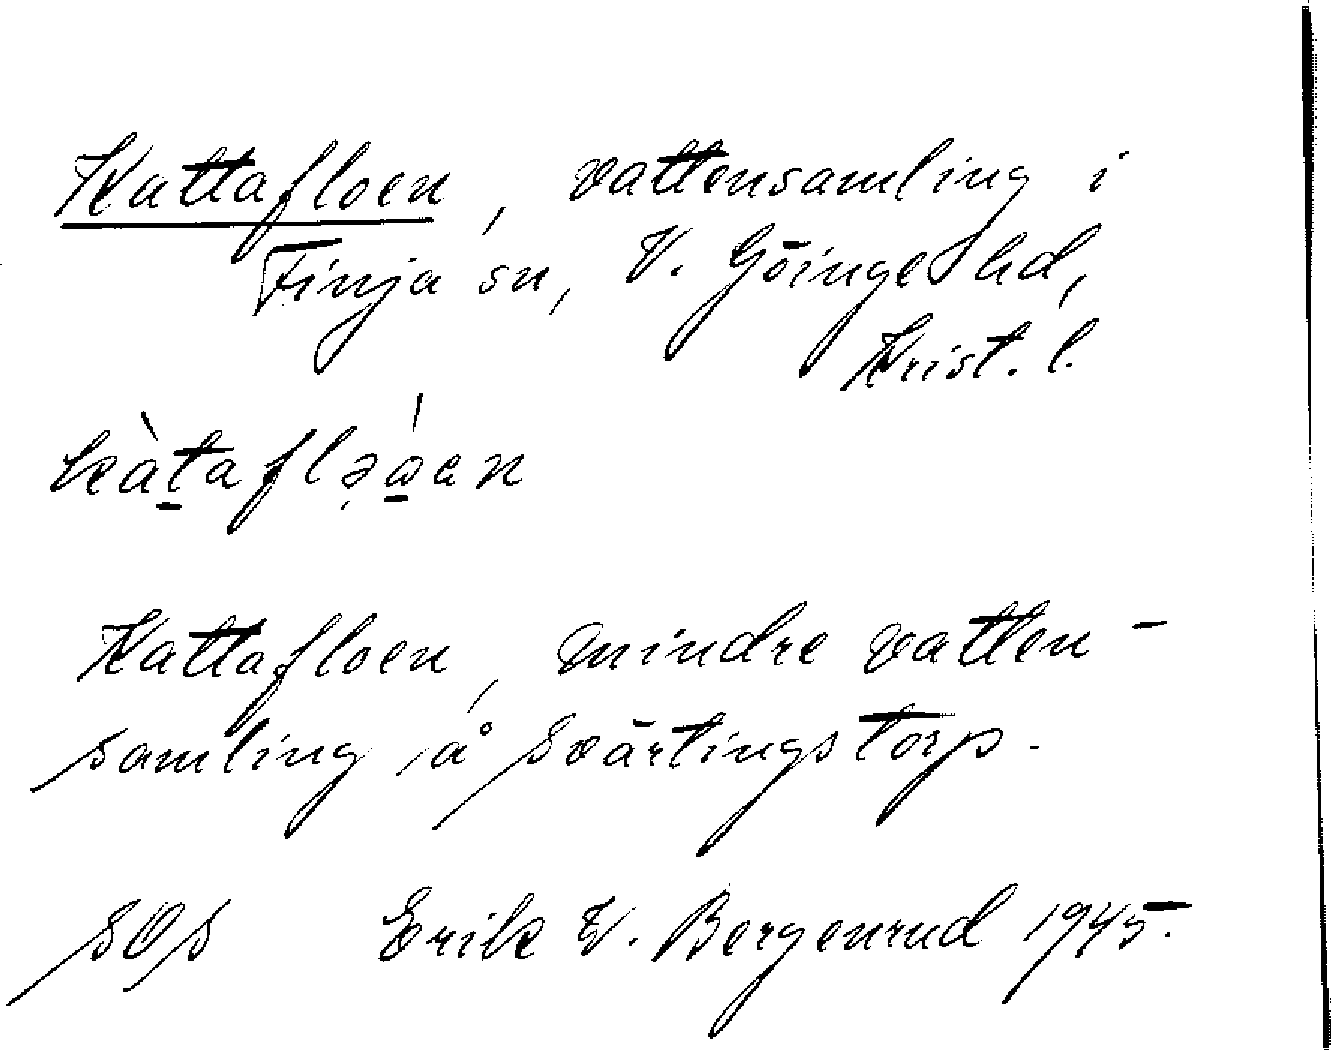 Kattafloen, vattensamling i
Finja sn, V. Göinge hd,
Krist. l.
Kattafloen, mindre vatten-
samling å Svärtingstorp.
SOS Erik W. Bergenrud 1945.